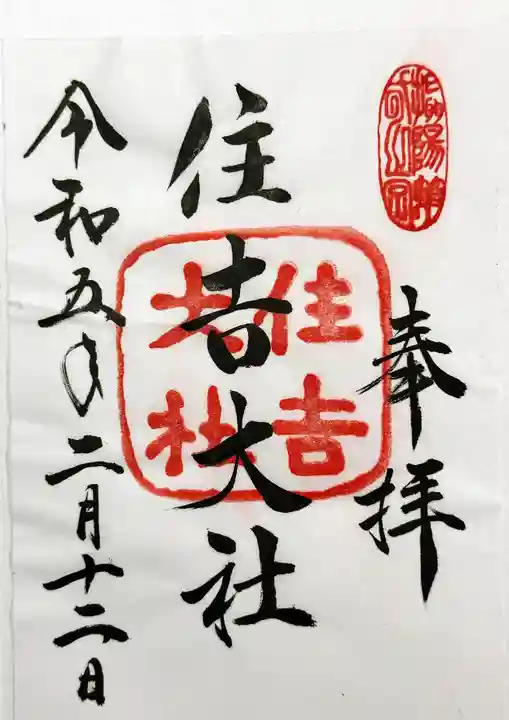 奉拝
住吉大社
住吉
大社
令和五年二月十二日